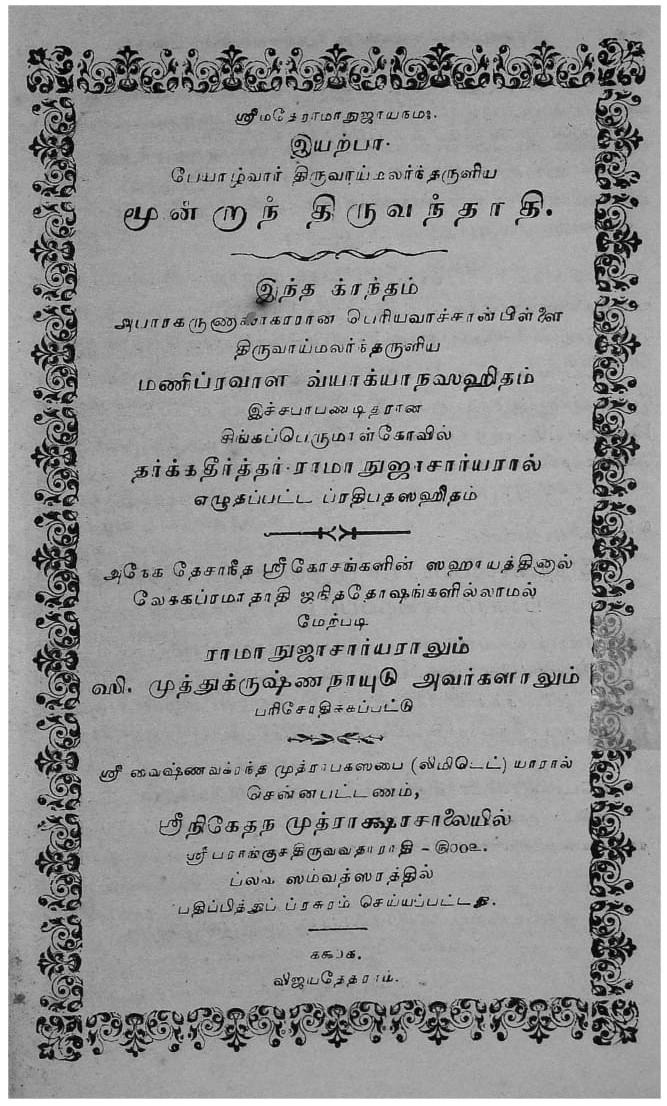 ஸ்ரீமதேராமாநுஜாயநம:.
இயற்பா.
பேயாழ்வார் திருவாய்மலர்ந்தருளிய
மூன்றுந் திருவந்தாதி.
இந்த க்ரந்தம்
அபாரகருணாகாரரான பெரியவாச்சான்பிள்ளை
திருவாய்மலர்ந்தருளிய
மணிப்ரவாள வ்யாக்யாநஸஹிதம்
இச்சபாபண்டிதரான
சிங்கப்பெருமாள்கோவில்
தர்க்கதீர்த்தர்-ராமாநுஜாசார்யரால்
எழுதப்பட்ட ப்ரதிபதஸஹிதம்
அநேக தேசாநீத ஸ்ரீகோசங்களின் ஸஹாயத்தினால்
லேககப்ரமாதாதி ஜநிததோஷங்களில்லாமல்
மேற்படி
ராமாநுஜாசார்யராலும்
ஸி. முத்துக்ருஷ்ணநாயுடு அவர்களாலும்
பரிசோதிக்கப்பட்டு
ஸ்ரீ வைஷ்ணவக்ரந்த முத்ராபகஸபை (லிமிடெட்) யாரால்
சென்னபட்டணம்,
ஸ்ரீநிகேதந முத்ராக்ஷரசாலையில்
ஸ்ரீபராங்குசதிருவவதாராதி -
ப்லவ ஸம்வத்ஸரத்தில்
பதிப்பித்துப் ப்ரசுரம் செய்யப்பட்டது.
விஜயதேதராம்.